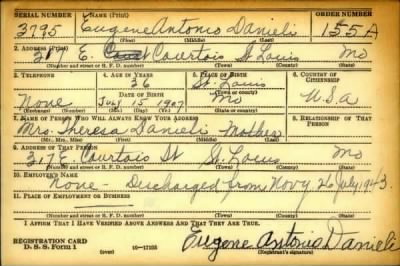 SERIAL NUMBER 1. NAME (Print) ORDER NUMBER
3795 Eugene Antonio Danieli 155A
(First) (Middle) (Last)
2. ADDRESS (Print)
317 E. Courtois St Louis Mo
(Number and street or R. F. D. number) (Town) (County) (State)
3. TELEPHONE 4. AGE IN YEARS 5. PLACE OF BIRTH 6. COUNTRY OF CITIZENSHIP
36 St. Louis
DATE OF BIRTH
None July 15 1907 Mo U.S.A
(Exchange) (Number) (Mo.) (Day) (Yr.) (State or country)
7. NAME OF PERSON WHO WILL ALWAYS KNOW YOUR ADDRESS 8. RELATIONSHIP OF THAT PERSON
Mrs. Theresa Danieli Mother
(Mr., Mrs., Miss) (First) (Middle) (Last)
9. ADDRESS OF THAT PERSON
317 E. Courtois St St. Louis Mo
(Number and street or R. F. D. number) (Town) (County) (State)
10. EMPLOYER'S NAME
None - Discharged from Navy 26 July 1943.
11. PLACE OF EMPLOYMENT OR BUSINESS
(Number and street or R. F. D. number) (Town) (County) (State)
I AFFIRM THAT I HAVE VERIFIED ABOVE ANSWERS AND THAT THEY ARE TRUE.
REGISTRATION CARD
D. S. S. Form 1 (over) Eugene Antonio Danieli
(Registrant's signature)